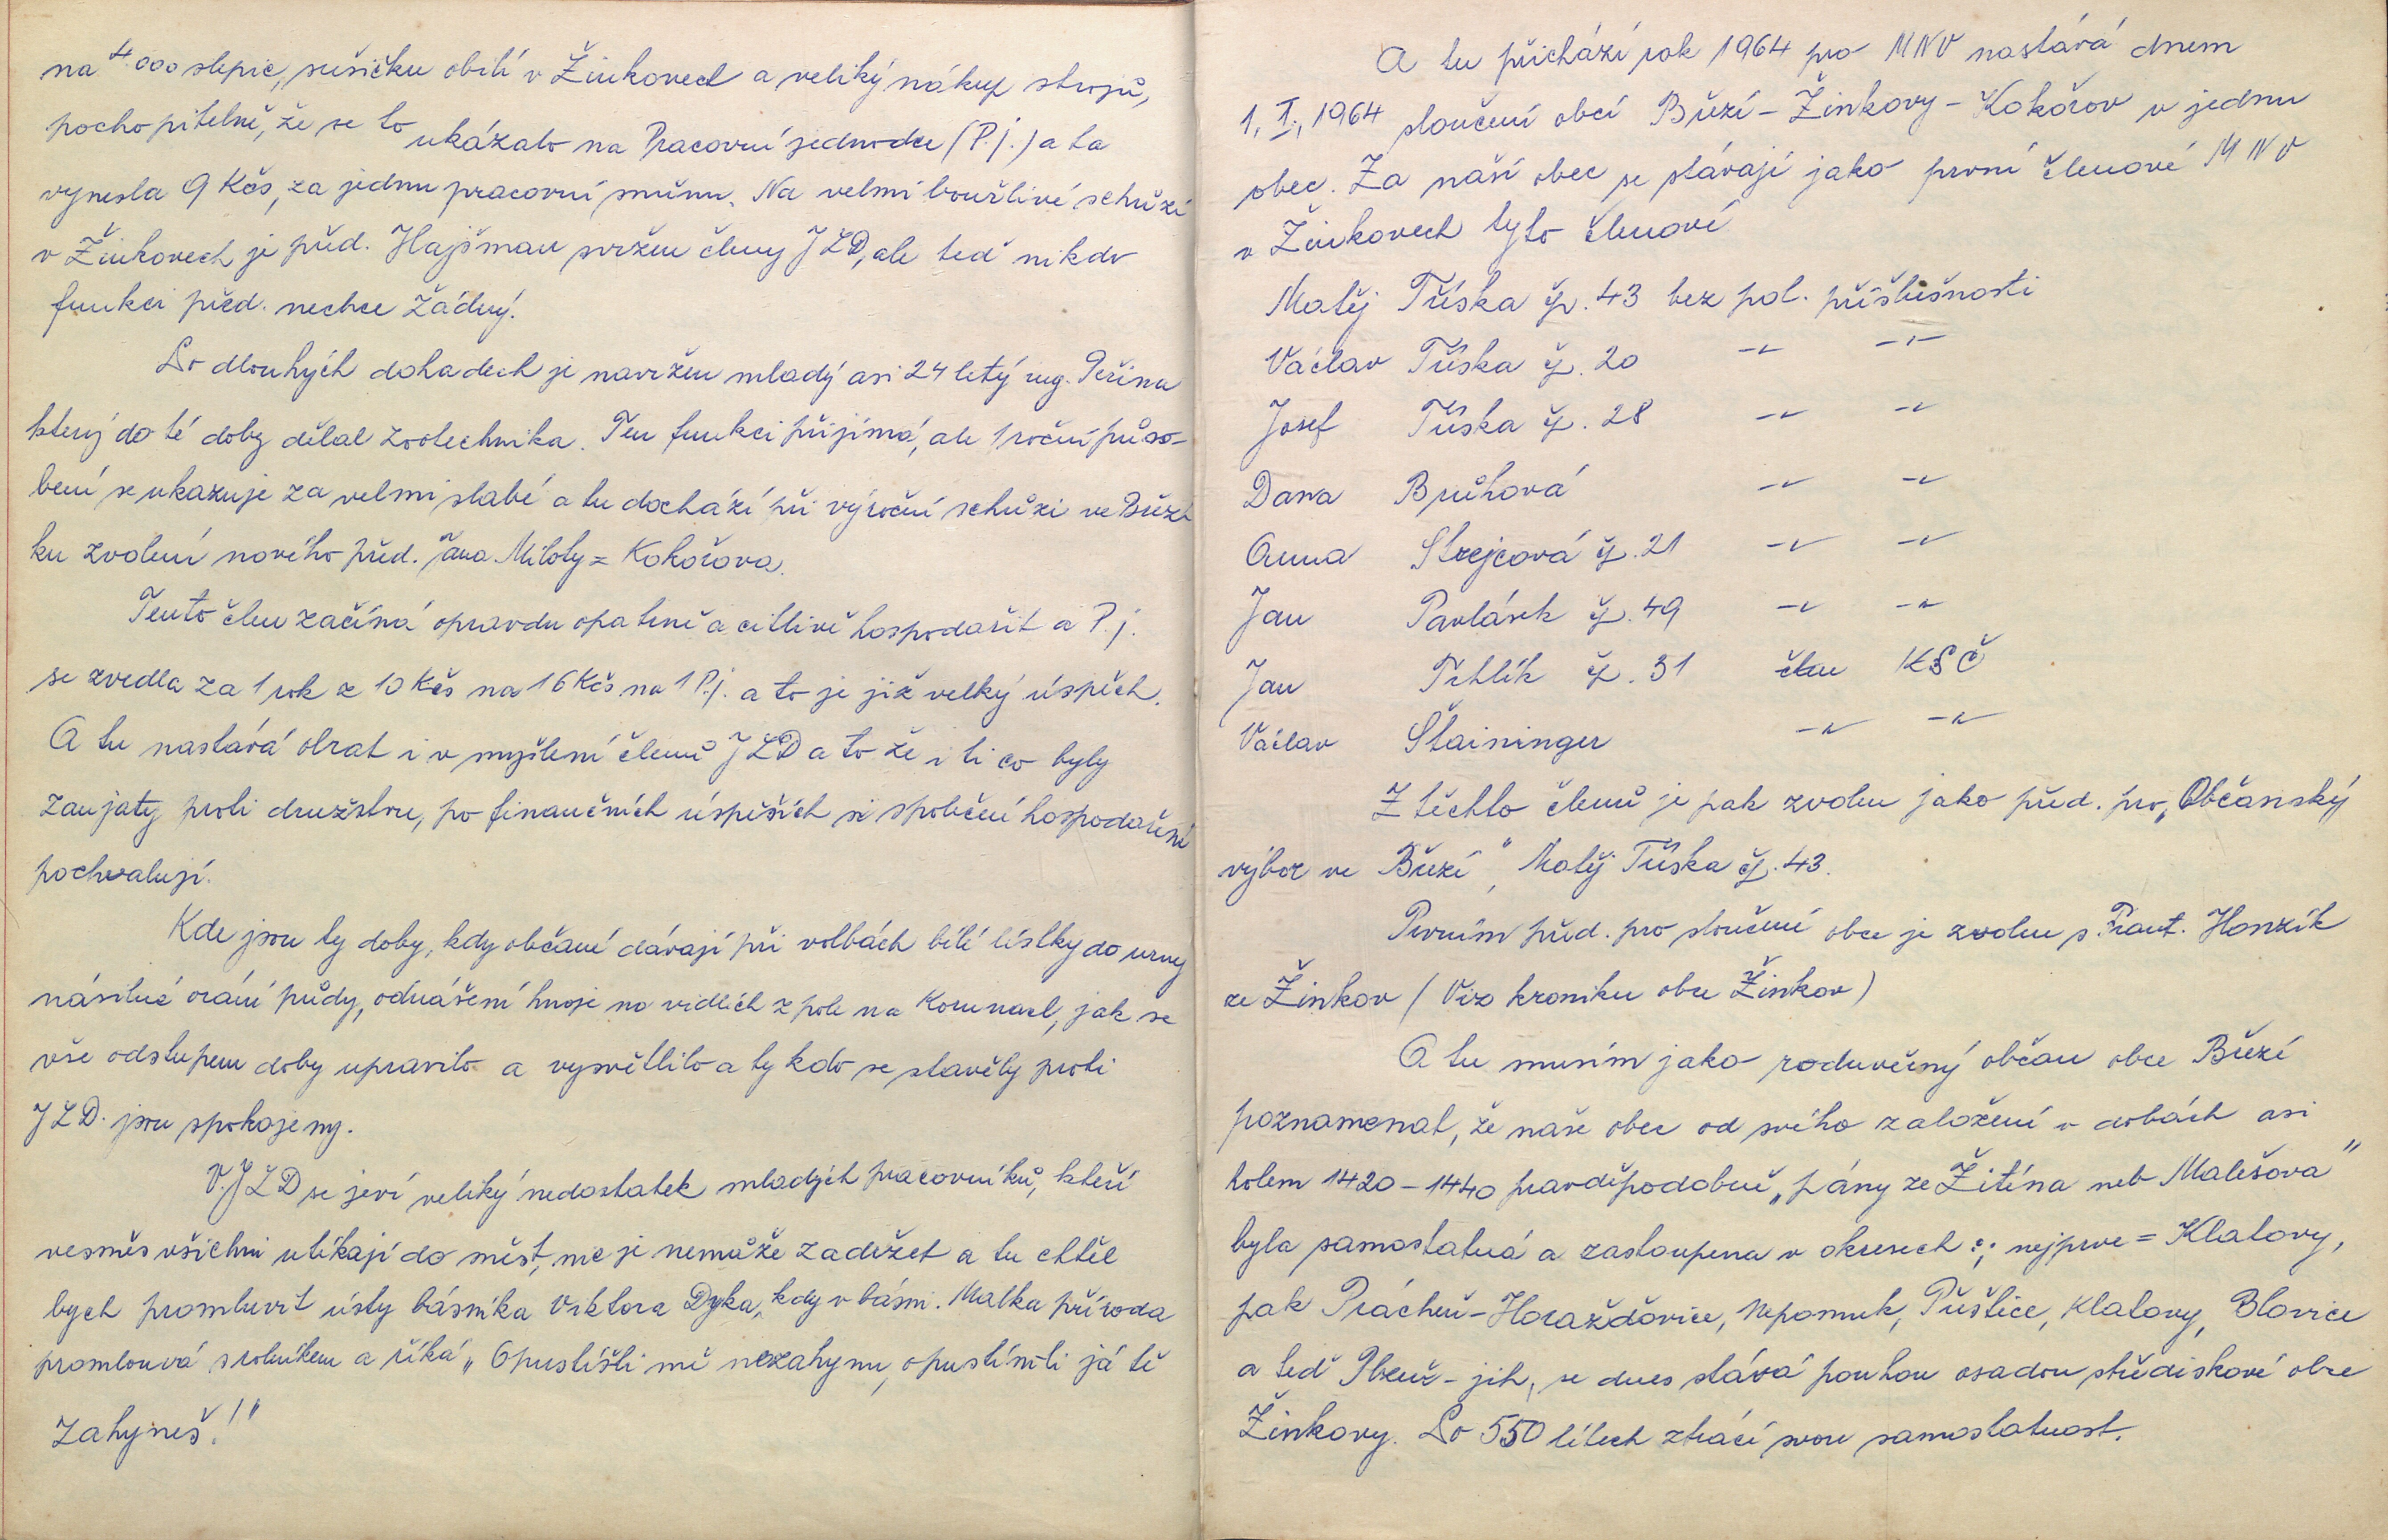 na 4.000 slepic, sušičku obilí v Žinkovech a veliký nákup strojů,
pochopitelně, že se to ukázalo na Pracovní jednotce (P.j.) a ta
vynesla 9 Kčs, za jednu pracovní směnu. Na velmi bouřlivé schůzi
v Žinkovech je před. Hajšman svržen členy JZD, ale teď nikdo
funkci před. nechce žádný.
Po dlouhých dohadech je navržen mladý asi 24 letý ing. Peřina
který do té doby dělal zootechnika. Ten funkci přijímá, ale 1 roční půso-
bení se ukazuje za velmi slabé a tu dochází při výroční schůzi ve Březí
ku zvolení nového před. Jana Miloty = Kokořova.
Tento člen začíná opravdu opatrně a citlivě hospodařit a P.j.
se zvedla za 1 rok z 10 Kčs na 16 Kčs na 1 P.j. a to je již velký úspěch.
A tu nastává obrat i v myšlení členů JZD a to že i ti co byly
zaujaty proti družstvu, po finančních úspěších si společní hospodaření
pochvalují.
Kde jsou ty doby, kdy občané dávají při volbách bílé lístky do urny
násilné orání půdy, odnášení hnoje na vidlích z pole na Korunach, jak se
vše odstupem doby upravilo a vysvětlilo a ty kdo se stavěly proti
JZD. jsou spokojeny.
V. JZD se jeví veliký nedostatek mladých pracovníků, kteří
vesměs všichni utíkají do měst, nic je nemůže zadržet a tu chtěl
bych promluvit ústy básníka Viktora Dyka, kdy v básni. Matka příroda
promlouvá s rolníkem a říká „ Opustíšli mě nezahynu, opustím-li já tě
zahyneš!"
A tu přichází rok 1964 pro MNV nastává dnem
1. I., 1964 sloučení obcí Březí - Žinkovy - Kokořov v jednu
obec. Za naší obec se stávají jako první členové MNV
v Žinkovech tyto členové
Matěj Tříska čp. 43 bez pol. příslušnosti
Václav Tříska čp. 20 -"- -"-
Josef Tříska čp. 28 -"- -"-
Dana Brůhová -"- -"-
Anna Strejcová čp. 21 -"- -"-
Jan Pavlásek čp. 49 -"- -"-
Jan Trhlík čp. 31 člen KSČ
Václav Štaininger -"- -"-
Z těchto členů je pak zvolen jako před. pro „Občanský
výbor ve Březí", Matěj Tříska čp. 43.
Prvním před. pro sloučené obce je zvolen s. Frant. Honzík
ze Žinkov (Viz kroniku obce Žinkov)
A tu musím jako roduvěrný občan obce Březí
poznamenat, že naše obec od svého založení v dobách asi
kolem 1420 - 1440 pravděpodobně „pány ze Žitína neb Malešova"
byla samostatná a zastoupena v okresech :; nejprve = Klatovy,
pak Prácheň - Horažďovice, Nepomuk, Přeštice, Klatovy, Blovice
a teď Plzeň - jih, se dnes stává pouhou osadou střediskové obce
Žinkovy. Po 550 létech ztrácí svou samostatnost.